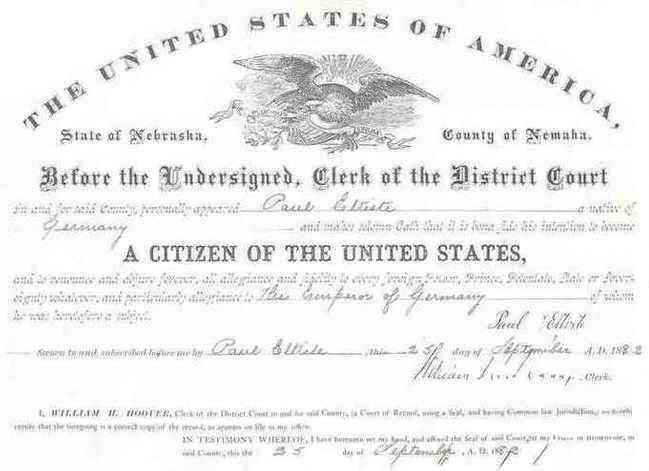 THE UNITED STATES OF AMERICA,
State of Nebraska, County of Nemaha.
Before the Undersigned, Clerk of the District Court
in and for said County, personally appeared Paul Eltiste a native of
Germany and makes solemn Oath that it is bona fide his intention to become
A CITIZEN OF THE UNITED STATES,
and to renounce and abjure forever, all allegiance and fidelity to every foreign Power, Prince, Potentate, State or Sover-
eignty whatever, and particularly allegiance to The Emperor of Germany of whom
he was heretofore a subject.
Paul Eltiste
Sworn to and subscribed before me by Paul Eltiste this 25 day of September A.D. 1882
William Clerk.
I, WILLIAM H. HOOVER, Clerk of the District Court in and for said County, (a Court of Record, using a Seal, and having Common law Jurisdiction,) do hereby
certify that the foregoing is a correct copy of the record, as appears on file in my office.
IN TESTIMONY WHEREOF, I have hereunto set my hand, and affixed the Seal of said Court, at my Office in Brownville, in
said County, this the 25 day of September A.D. 188